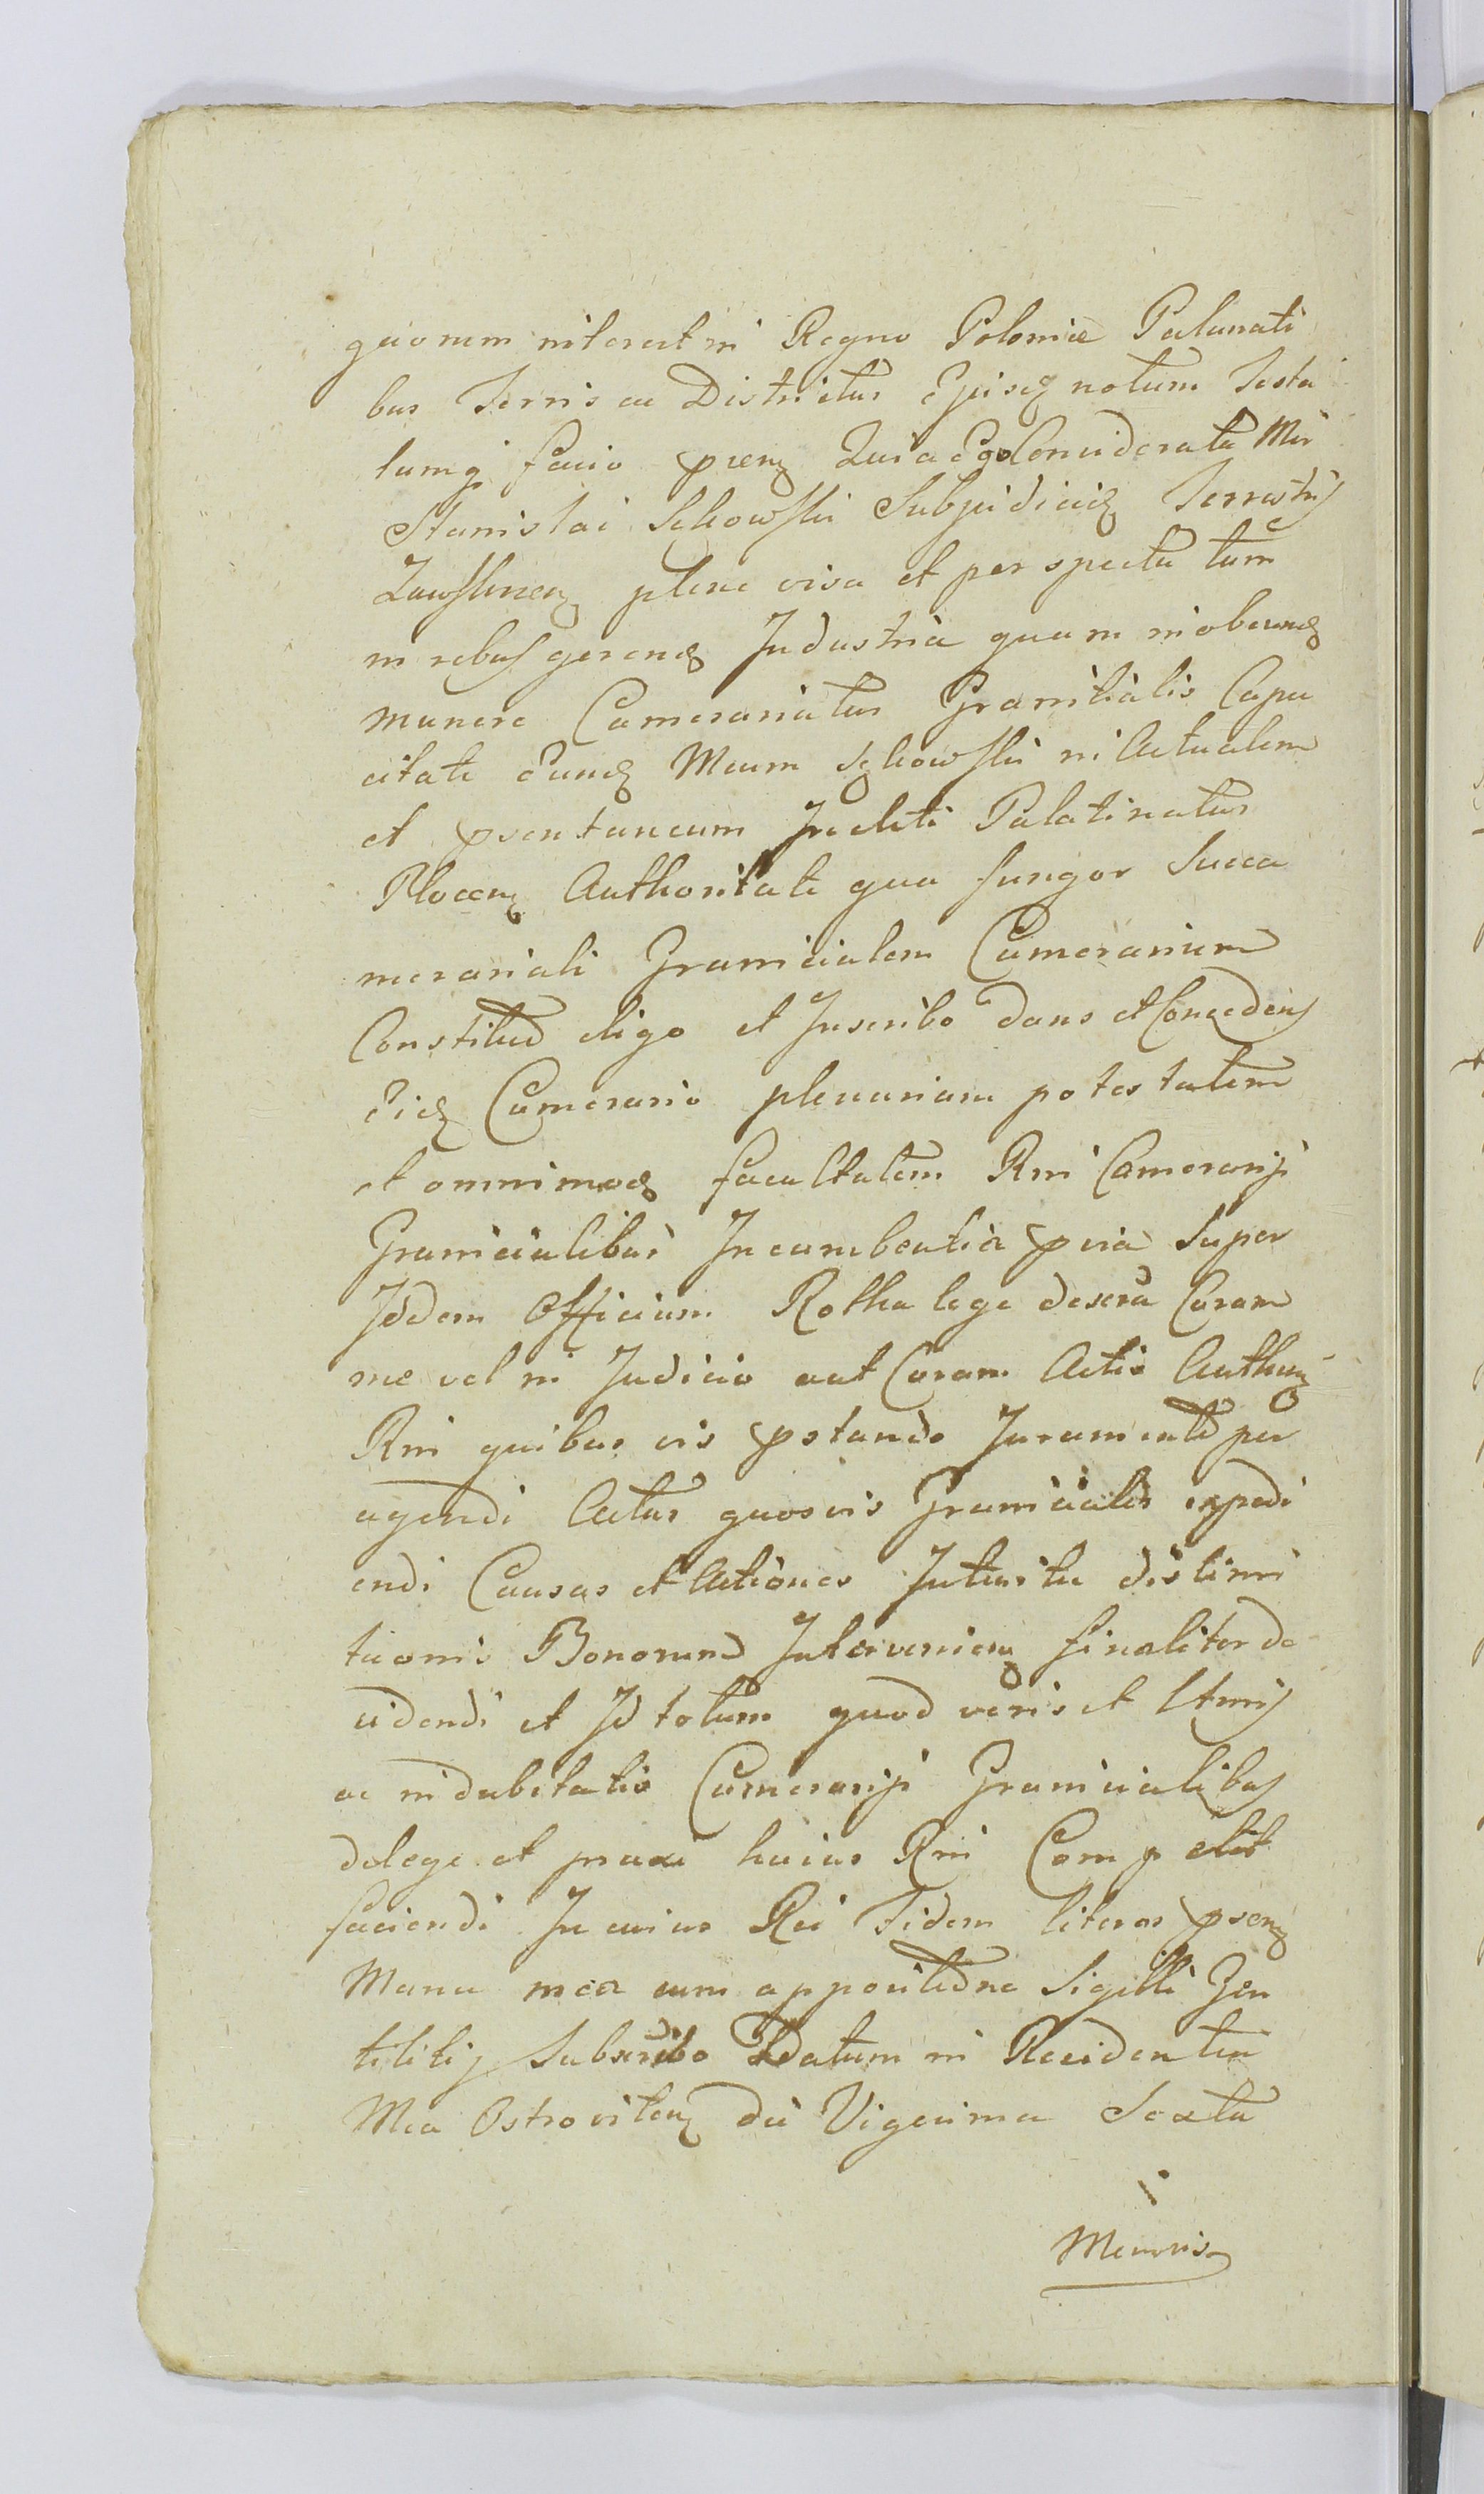 quorum interest in Regno Poloniæ Palanati
bus Terris ac Districtus Ejusq notum Testa
tumq facio prenz Quia Ego Considerata Mir
Stanislai Sękowski Subjudicię Terrestris
Zawskrnenz plene visa et perspecta tum
in rebus gerendz Industria quam in obeundz
munere Camerariatus Granitialis Capa
citate Eundz Meum Sękowski in Actualem
et psentaneum Incliti Palatinatus
Plocenz Authoritate qua fungor Succa
merariali Granicialem Camerarium
Constituo eligo et Inscribo dans et Concedens
Eidz Camerario plenariam potestatem
et omnimodz facultatem Rni Camerarijs
Granicialibus Incumbentia pvia super
Id dem Officium Rotha lege descra Coram
me vel in Judicio aut Coram Actis Authenz
Rni quibus vis pstando Juramento per
agendi Actus quosvis Graniciales expedi
endi Causas et Actiones Intuitu distinni
tuonis Bonorum Intervenienz finaliter de
cidendi et Id totum quod veris et Ltmis
ac indubitatis Camerarijs Granicialibus
de lege et praxi huius Rni Competit
faciendi In cuius Rei Fidem literas psenz
Manu mea cum appositione Sigilli Gen
tilitij Subscribo Datum in Residentia
Mea Ostrovitenz die Vigesima Sexta
Mensis